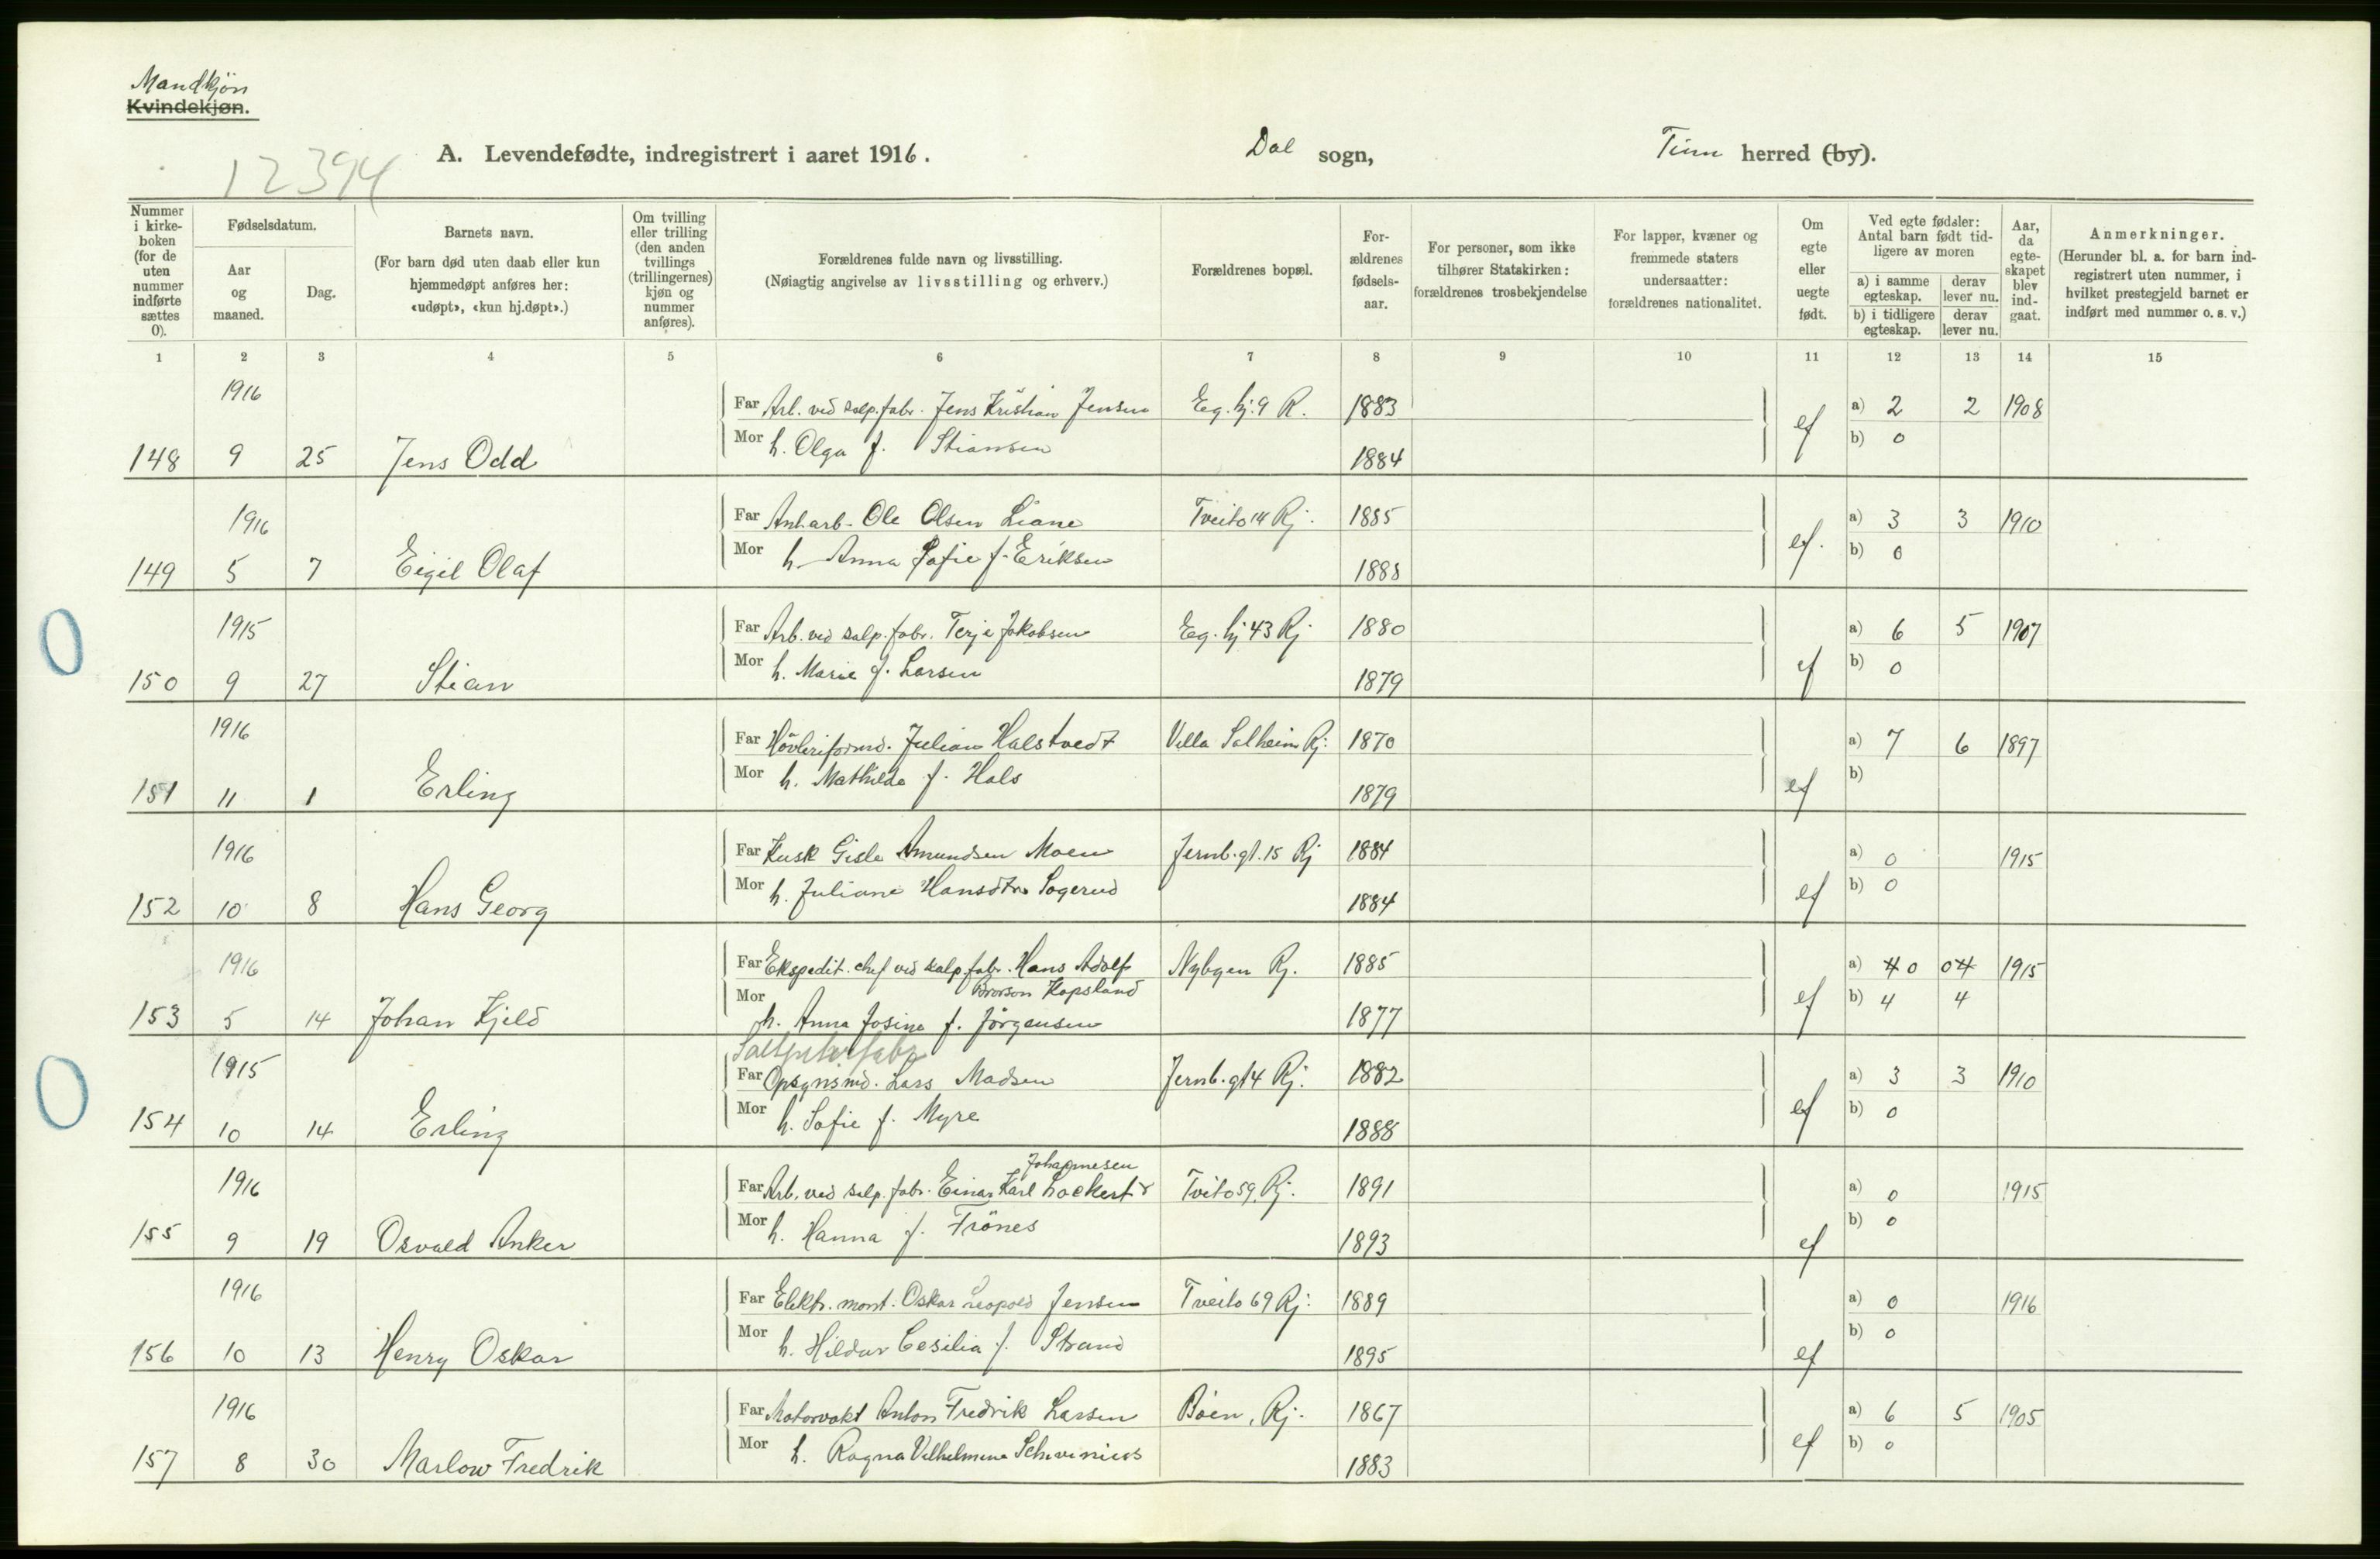 Mandkjøn
Kvindekjøn.
12394
A. Levendefødte, indregistrert i aaret 1916. Dal sogn, Tinn herred (by).
Nummer i kirke-boken (for de uten nummer indførte sættes 0).
Fødselsdatum.
Aar og maaned.
Dag.
Barnets navn.
(For barn død uten daab eller kun hjemmedøpt anføres her: «udøpt», «kun hj.døpt».)
Om tvilling eller trilling (den anden tvillings (trillingernes) kjøn og nummer anføres).
Forældrenes fulde navn og livsstilling.
(Nøiagtig angivelse av livsstilling og erhverv.)
Forældrenes bopæl.
For-ældrenes fødsels-aar.
For personer, som ikke tilhører Statskirken: forældrenes trosbekjendelse
For lapper, kvæner og fremmede staters undersaatter: forældrenes nationalitet.
Om egte eller uegte født.
Ved egte fødsler: Antal barn født tid-ligere av moren
a) i samme egteskap. derav lever nu.
b) i tidligere egteskap. derav lever nu.
Aar, da egte-skapet blev ind-gaat.
Anmerkninger.
(Herunder bl. a. for barn ind-registrert uten nummer, i hvilket prestegjeld barnet er indført med nummer o. s. v.)
1 2 3 4 5 6 7 8 9 10 11 12 13 14 15
1916 Far Arb. ved salp.fabr. Jens Kristian Jensen Eg. hj. 9 R. 1883 a) 2 2 1908
148 9 25 Jens Odd Mor h. Olga f. Stiansen 1884 ef b) 0
1916 Far Anl.arb. Ole Olsen Liane Tveito 14 Rj. 1885 a) 3 3 1910
149 5 7 Eigil Olaf Mor h. Anna Sofie f. Eriksen 1888 ef. b) 0
1915 Far Arb. ved salp.fabr. Terje Jakobsen Eg. hj 43 Rj 1880 a) 6 5 1907
0
150 9 27 Stian Mor h. Marie f. Larsen 1879 ef b) 0
1916 Far Høvleriformd. Julian Halstvedt Villa Solheim Rj: 1870 a) 7 6 1897
151 11 1 Erling Mor h. Mathilde f. Hals 1879 ef b)
1916 Far Kusk Gisle Amundsen Moen Jernb.gt. 15 Rj 1884 a) 0 1915
152 10 8 Hans Georg Mor h. Juliane Hansdtr Sogerud 1884 ef b) 0
1916 Far Ekspedit. chef ved salp.fabr. Hans Adolf Nybyen Rj. 1885 a) 4 0 0 4 1915
Brorson Kopsland
153 5 14 Johan Kjeld Mor h. Anna Josine f. Jörgensen 1877 ef b) 4 4
Saltpeterfabr
1915 Far Opsynsmd. Lars Madsen Jernb.gt 4 Rj. 1882 a) 3 3 1910
0
154 10 14 Erling Mor h. Sofie f. Myre 1888 ef b) 0
Johannesen
1916 Far Arb. ved salp.fabr. Einar Karl Lockert Tveito 59, Rj. 1891 a) 0 1915
155 9 19 Osvald Anker Mor h. Hanna f. Frönes 1893 ef b) 0
1916 Far Elektr. mont. Oskar Leopold Jensen Tveito 69 Rj: 1889 a) 0 1916
156 10 13 Henry Oskar Mor h. Hildur Cesilia f. Strand 1895 ef b) 0
1916 Far Motorvakt Anton Fredrik Larsen Bøen, Rj. 1867 a) 6 5 1905
157 8 30 Marlow Fredrik Mor h. Ragna Vilhelmine 1883 ef b) 0